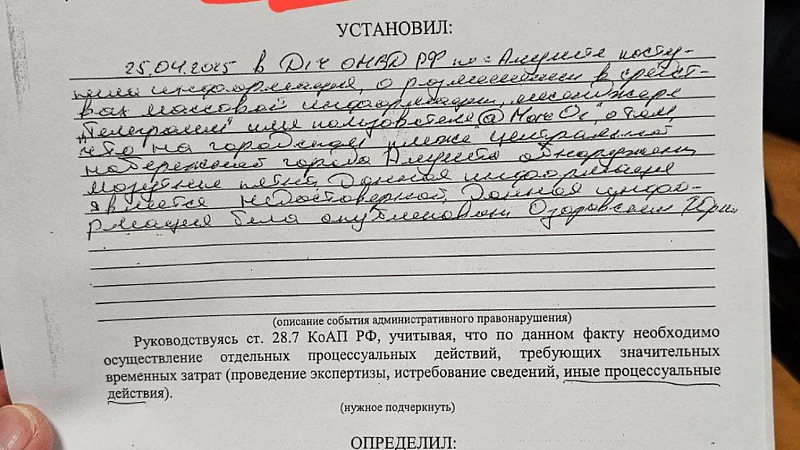 УСТАНОВИЛ:
25.04.2025 в ДЧ ОМВД РФ по г. Алуште посту-
пила информация, о размещении в средст-
вах массовой информации, мессенджере
"Телеграмм" имя пользователя @ о том,
что на городском пляже центральной
набережной города Алушта обнаружены
мазутные пятна. Данная информация
является недостоверной. Данная инфо-
рмация была опубликована Озаровским Юри
(описание события административного правонарушения)
Руководствуясь ст. 28.7 КоАП РФ, учитывая, что по данном факту необходимо
осуществление отдельных процессуальных действий, требующих значительных
временных затрат (проведение экспертизы, истребование сведений, иные процессуальные
действия).
(нужное подчеркнуть)
ОПРЕДЕЛИЛ: